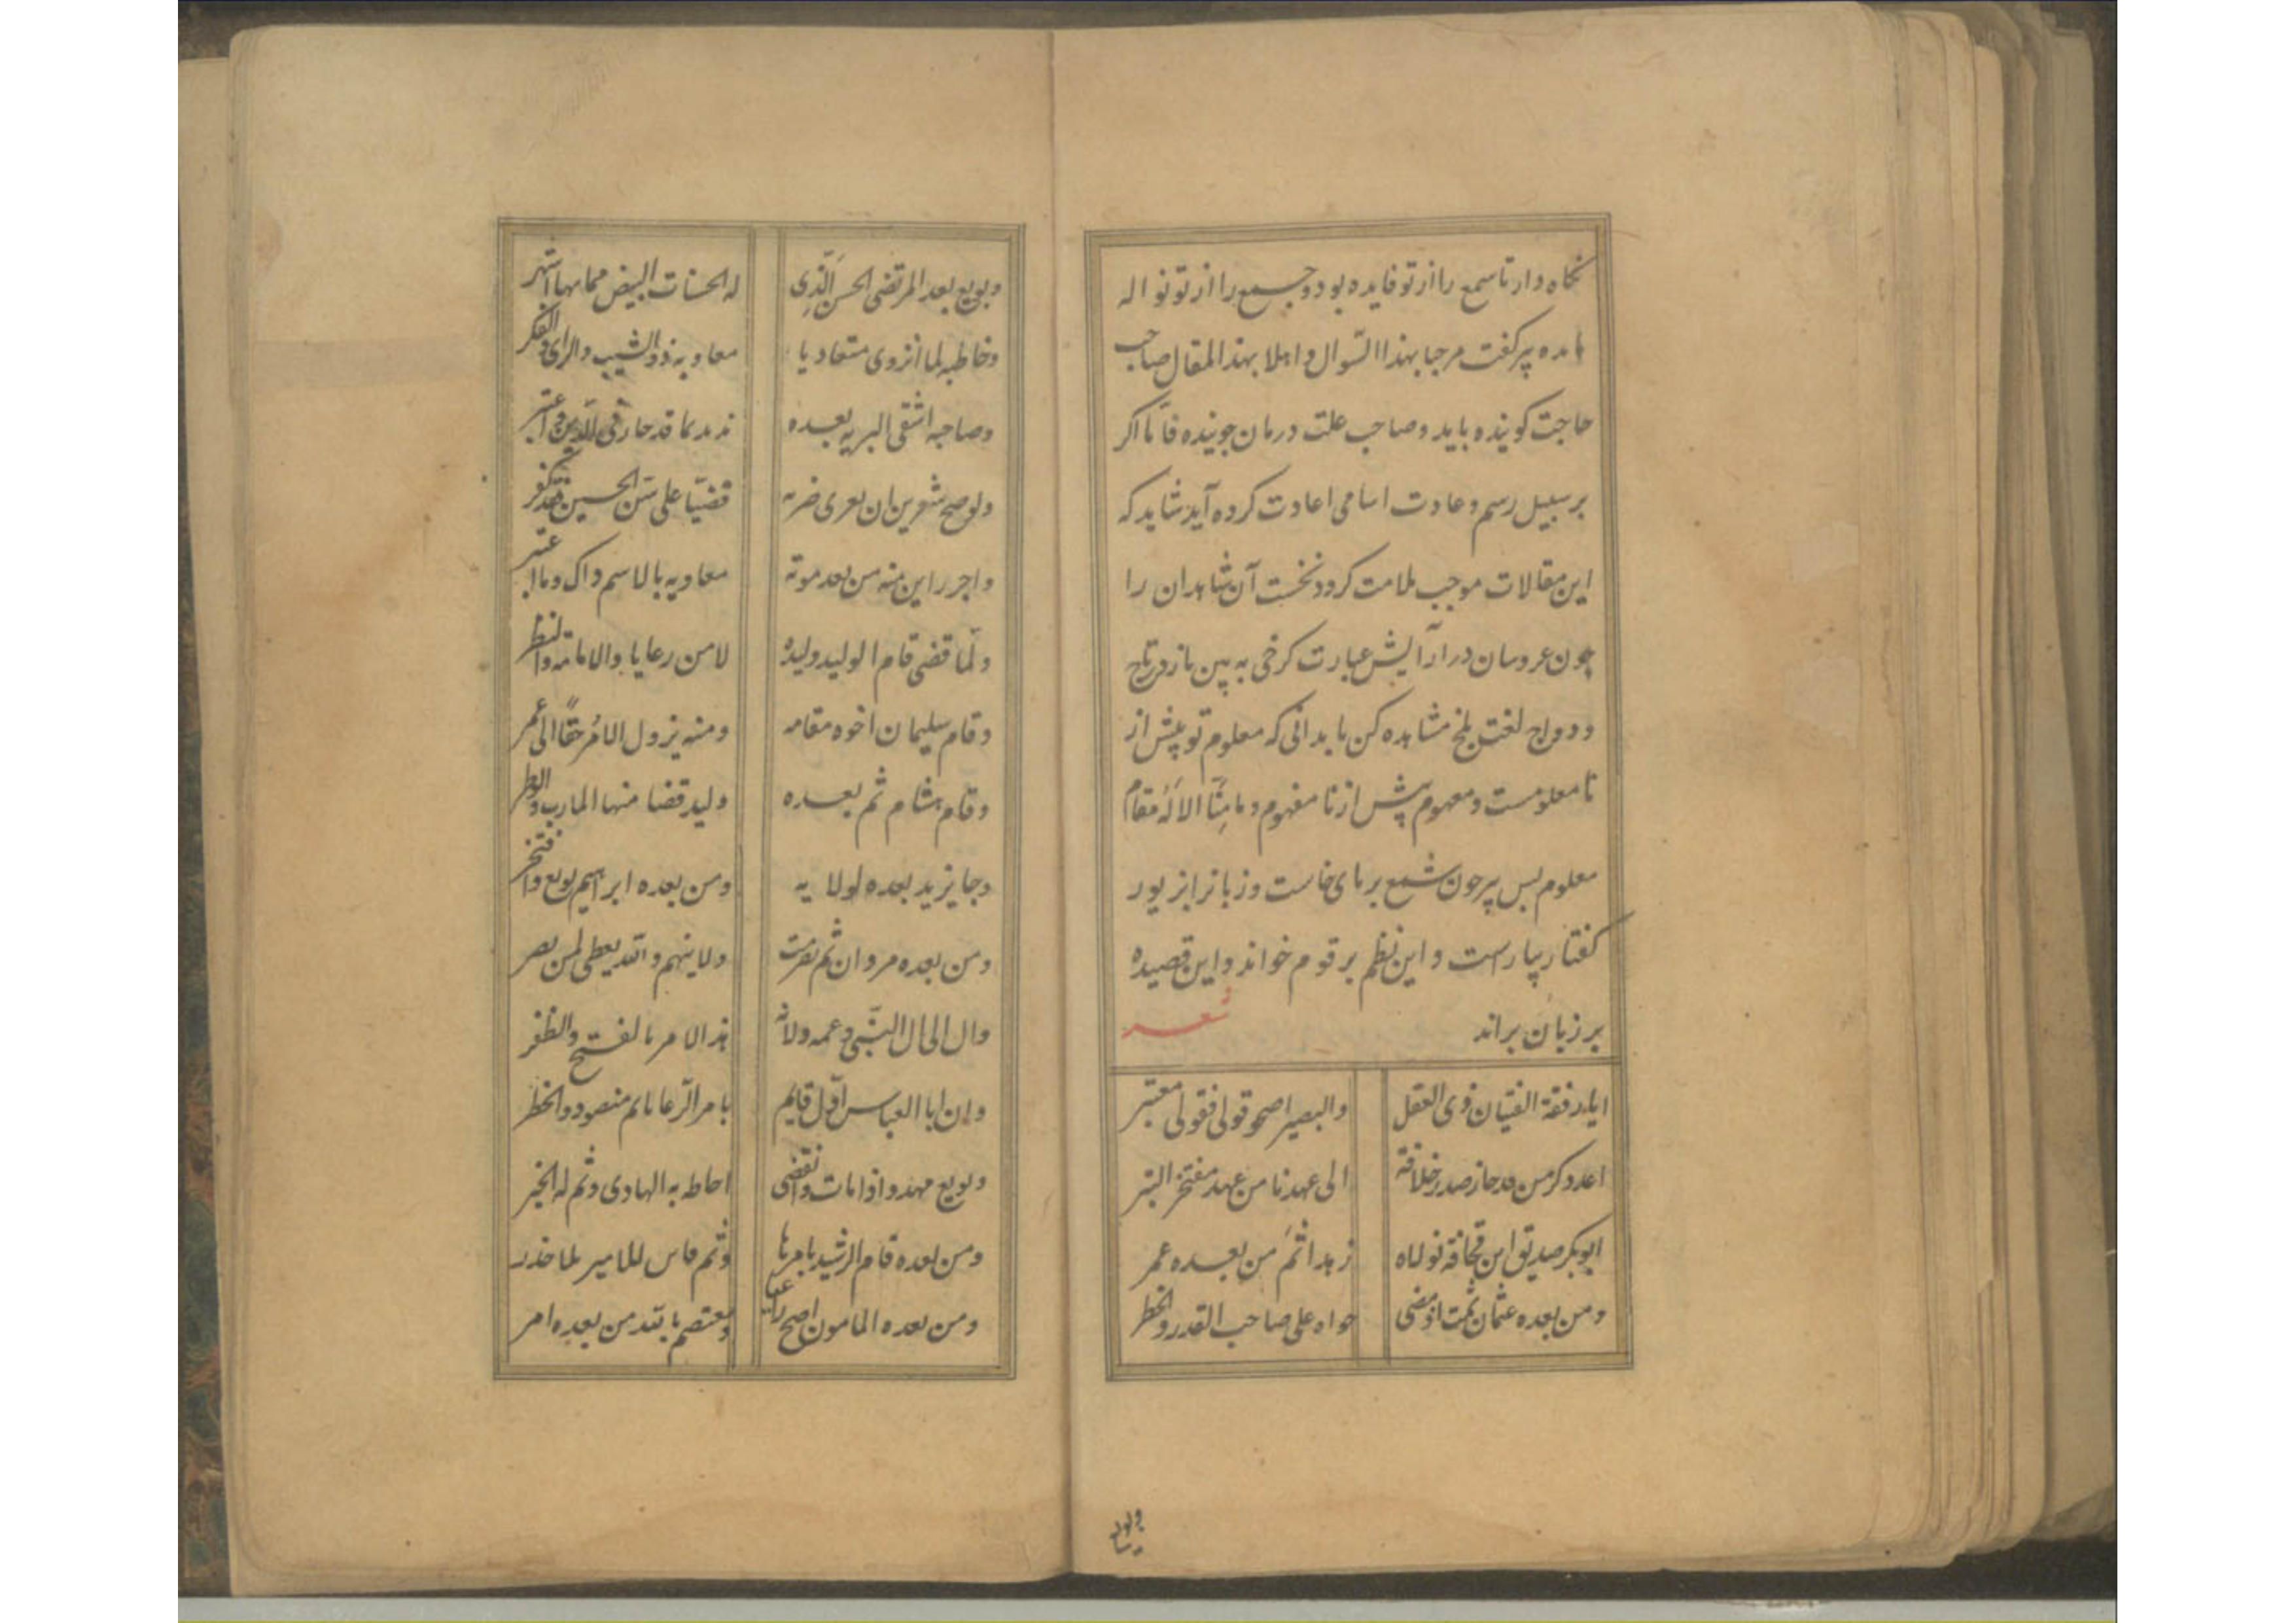 نگاه دار تا سمع را از تو فایده بود و جمع را از تو نواله
مایده پیر گفت مرحبا بهذا السّوال و اهلا بهذا المقال صاحب
حاجت گوینده باید و صاحب علت درمان جوینده فامّا اگر
بر سبیل رسم و عادت اسامی اعادت کرده آید شاید که
این مقالات موجب ملامت گردد نخست آن شاهدان را
چون عروسان در آرایش عبارت کرخی به بین باز در تاج
و دواج لغت بلخ مشاهده کن تا بدانی که معلوم تو پیش از
نا معلومست و مفهوم پیش از نا مفهوم و ما مِنّا الا لَهُ مَقام
معلوم پس پیر چون شمع بر پای خاست و زبانرا بزیور
گفتار بیاراست و این نظم بر قوم خواند و این قصیده
بر زبان براند شعر
ایا رفقة الفتیان ذوی العقل والبصیر اصحو قولی فقولی معتبر
اعد ذکر من قد حاز صدر خلافة الی عهدنا من عهد مفتخر البشر
ابوبکر صدیق ابن قحافة تولاه زهدا ثمّ من بعده عمر
و من بعده عثمان ثمت اذ مضی حواه علی صاحب القدر و الخطر
وبویع
وبویع بعد المرتضی الحسن الّذی له الحسنات البیض مما بها اشتهر
وخاطبه لما انزوی متعادیا معاویه ذو الشیب و الرای و الفکر
وصاحبه اشقی البریه بعده فی الدین و اعتبر
ولو صح علی الحسین فقد کفر
من بعد موته معاویه بالاسم ذاک وما اعتبر
ولمّا قضی قام الولید ولیده لامن رعایا والامانة وانتظر
وقام سلیمان اخوه مقامه ومنه یزول الامر حقًا الی عمر
وقام هشام ثم بعده ولید قضا منها المارب والوطر
وجا یزید بعده لولایه ومن بعده ابراهیم بویع وافتخر
ومن بعده مروان ثم تصرمت ولاینهم والله یعطی لمن نصر
وال الی ال النّبی وعمه ولاة هذا الامر بالفتح والظفر
وان ابا العباس اوّل قایم بامر الرّعایا ثم منصور والخطر
وبویع مهدی واذا مات وانقضی احاط به الهادی وثم له الخبر
ومن بعده قام الرشید بامرنا وثم للامیر لما
ومن بعده المامون اصبح راعیا ومعتصم بالله من بعده امر